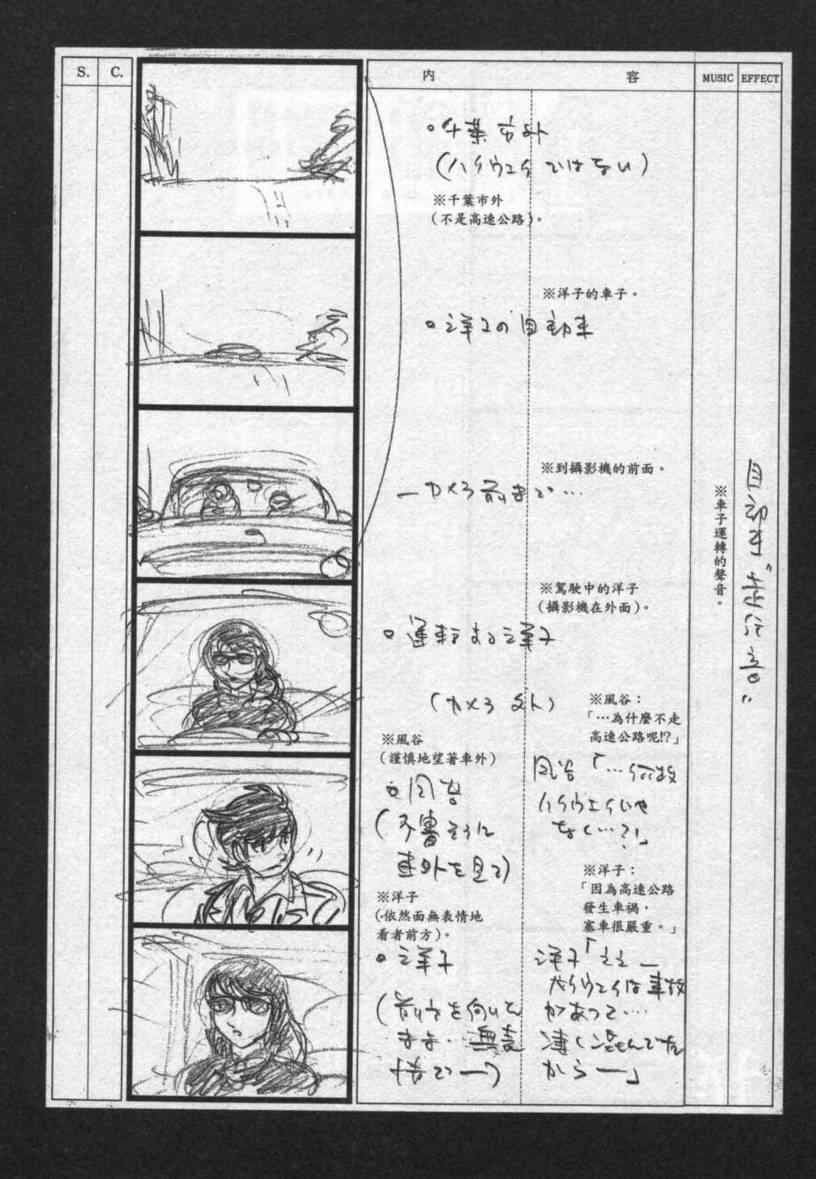 S. C. 内 容 MUSIC EFFECT
千葉市外
(ハイウエイではない)
※千葉市外
(不是高速公路)。
※洋子的車子。
洋子の自動車
※到攝影機的前面。
—カメラ前まで…
※駕駛中的洋子
(攝影機在外面)。
運転する洋子
(カメラ外)
※風谷:
「…為什麼不走
高速公路呢!?」
※風谷
(謹慎地望著車外)
風谷
(不審そうに
車外を見て)
風谷「…何故
ハイウエイじゃ
なく…?!」
※洋子:
「因為高速公路
發生車禍,
塞車很嚴重。」
※洋子
(依然面無表情地
看著前方)。
洋子
(前方を向いた
まま…無表
情で—)
洋子「ええ—
ハイウエイは事故
があって…
凄く混んでた
から—」
※車子運轉的聲音。
自動車“走行音”